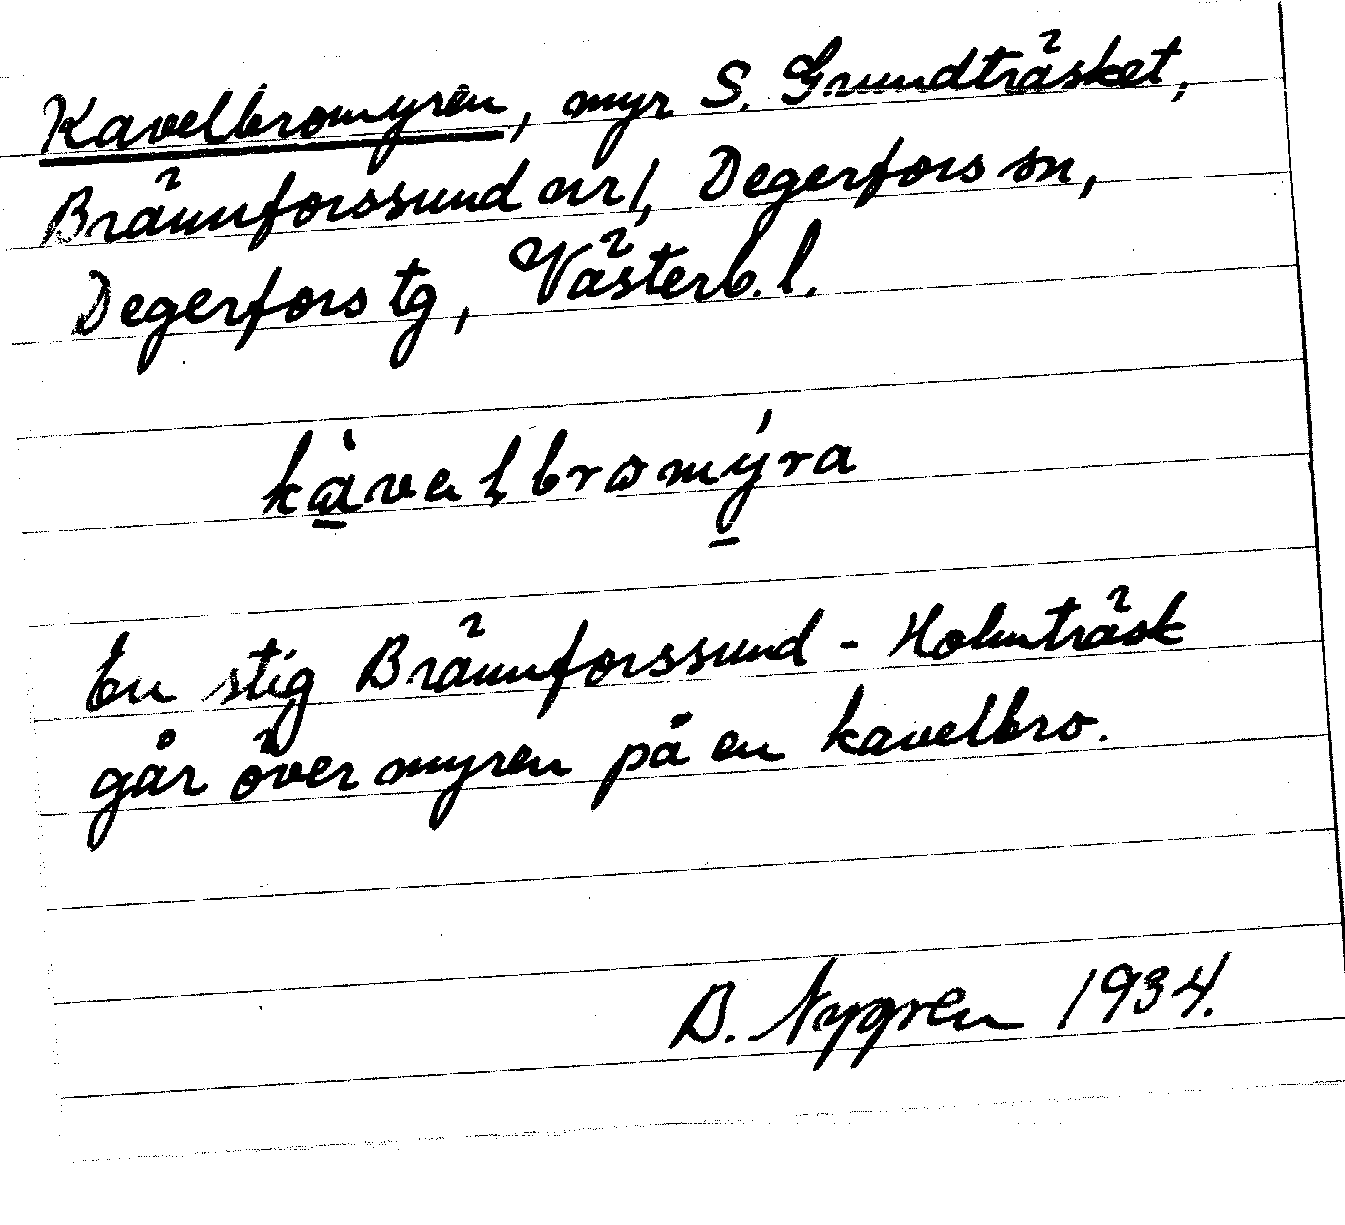 Kavelbromyren, myr S. Grundträsket,
Brännforssund nr 1, Degerfors sn,
Degerfors tg, Västerb. l.
kàvalbromýra
En stig Brännforssund - Holmträsk
går över myren på en kavelbro.
B. Nygren 1934.